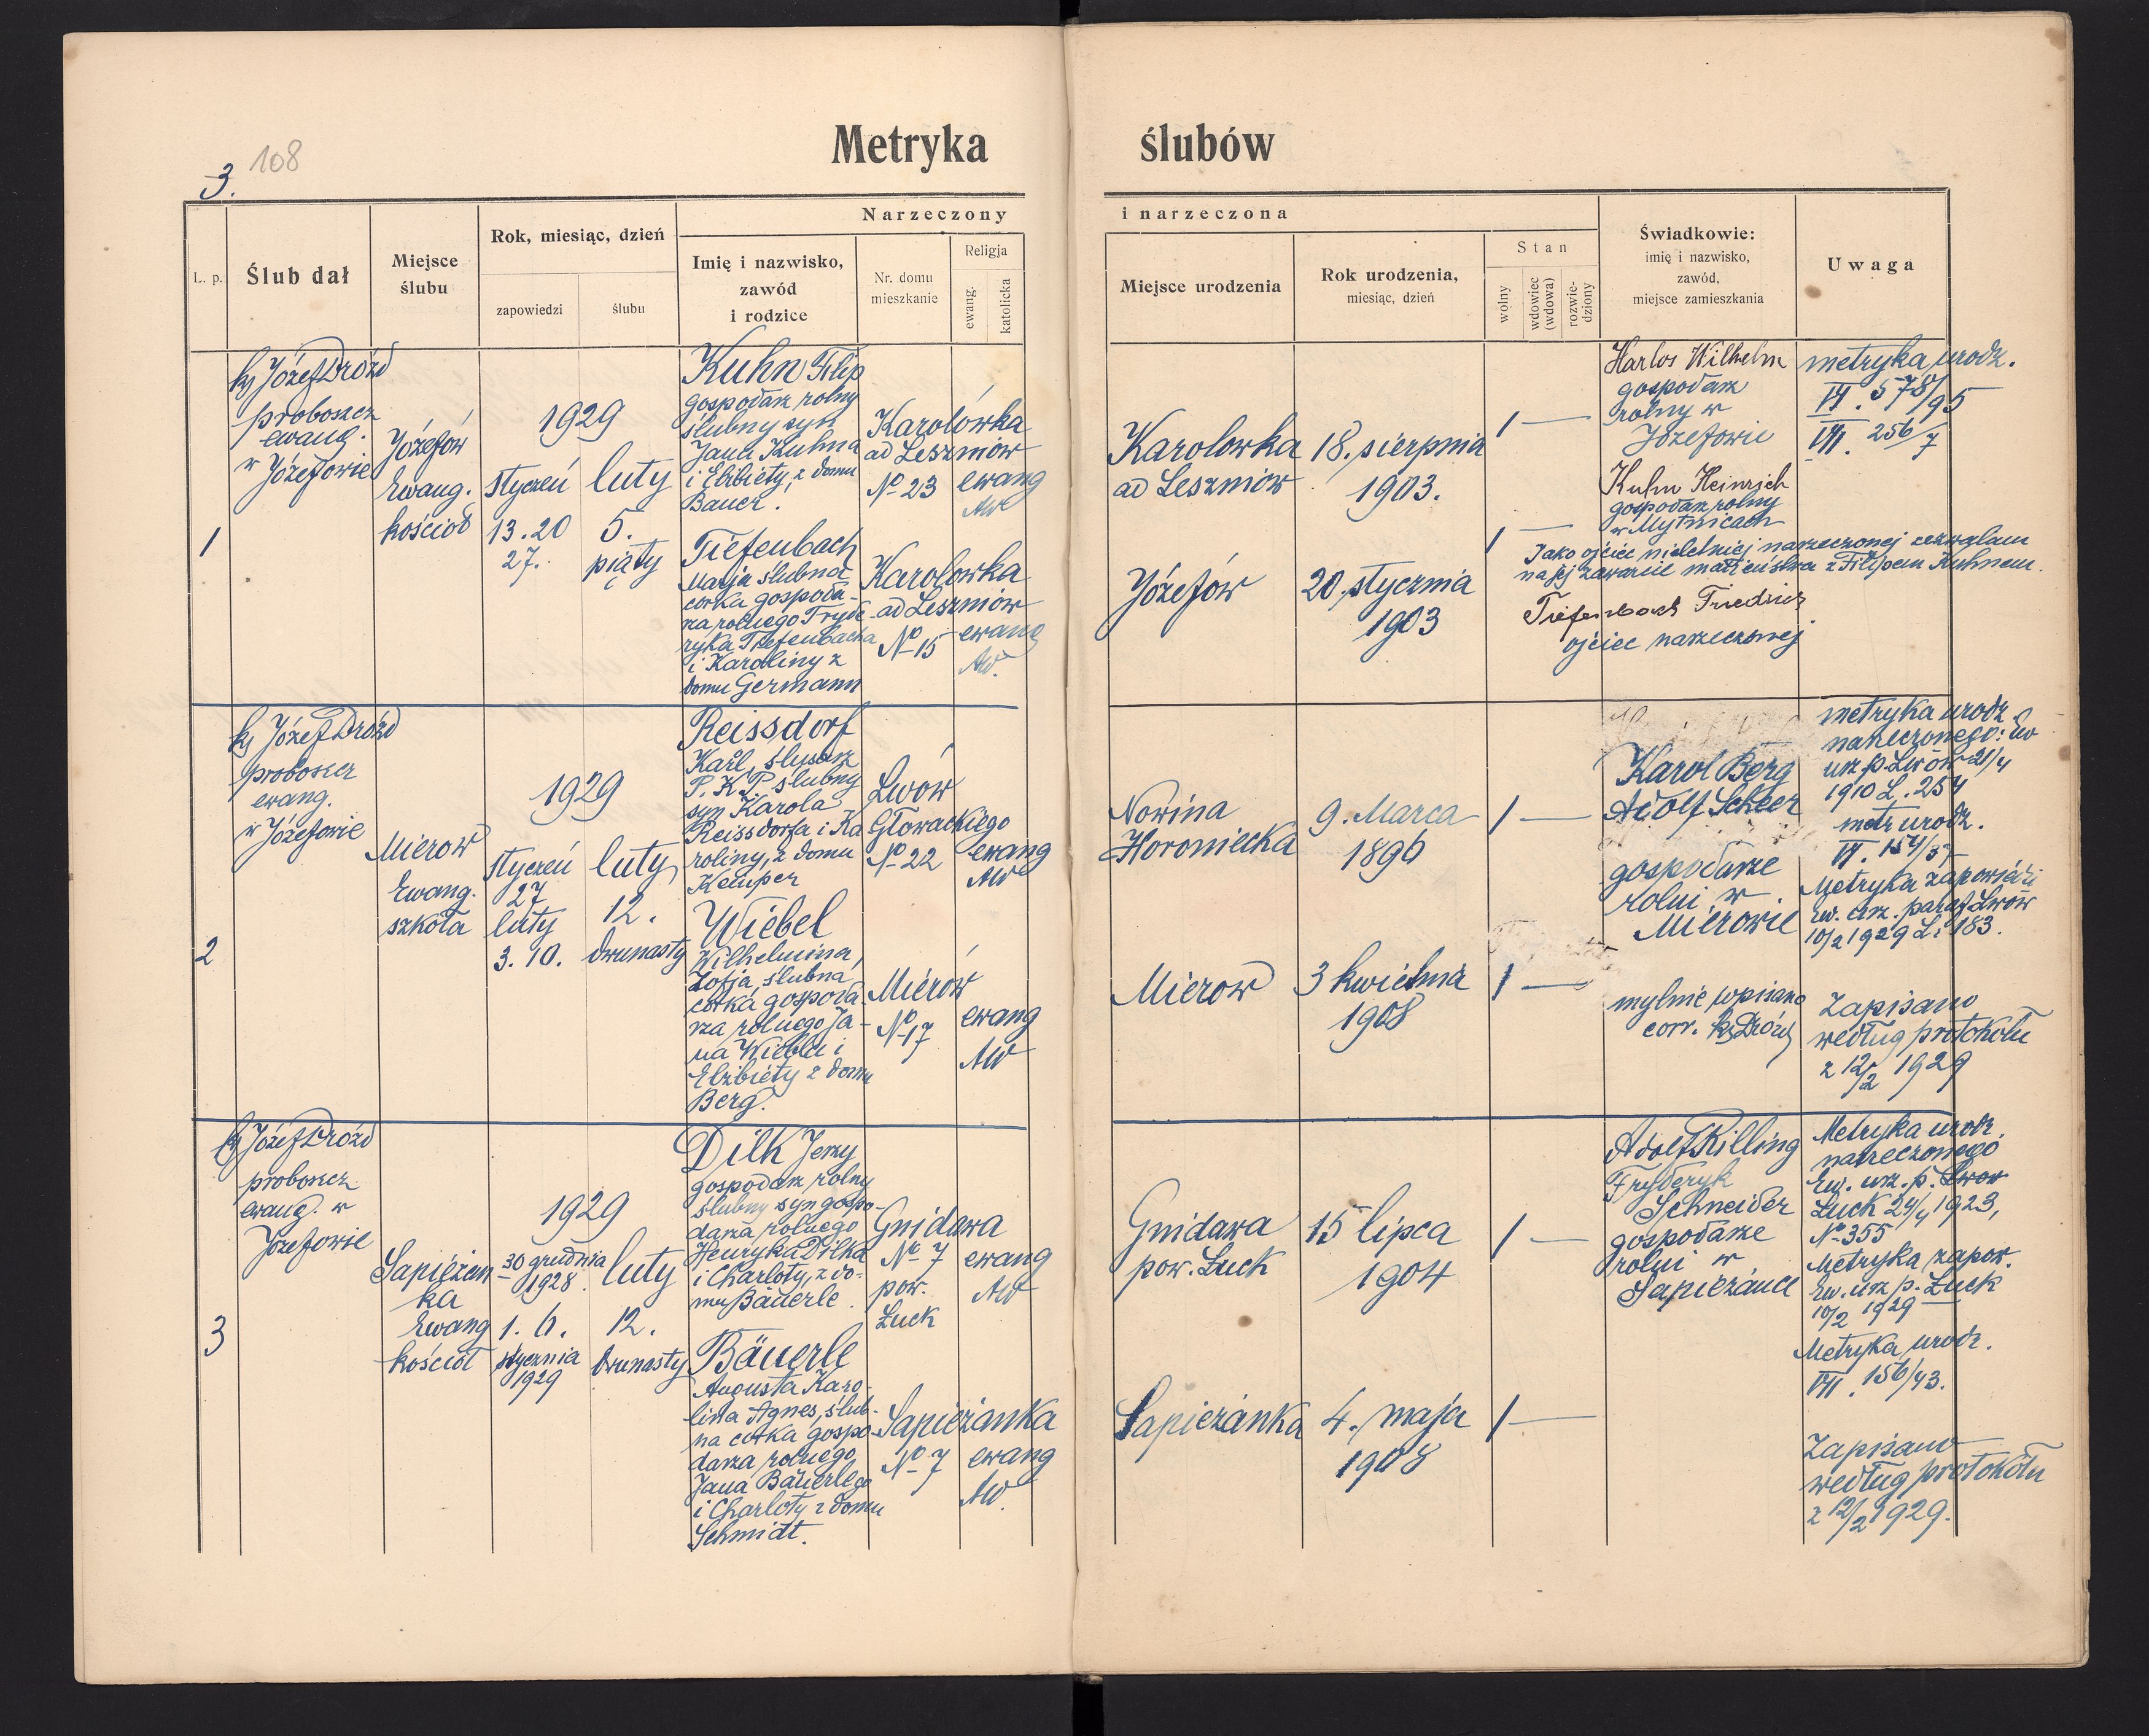 3.
108
Metryka ślubów
L. p.
Ślub dał
Miejsce
ślubu
Rok, miesiąc, dzień
zapowiedzi
ślubu
Narzeczony
Imię i nazwisko,
zawód
i rodzice
Nr. domu
mieszkanie
Religja
ewang.
katolicka
i narzeczona
Miejsce urodzenia
Rok urodzenia,
miesiąc, dzień
Stan
wolny
wdowiec
(wdowa)
rozwie-
dziony
Świadkowie:
imię i nazwisko,
zawód,
miejsce zamieszkania
Uwaga
1
ks Józef Dróżd
proboszcz
ewang.
w Józefowie
Józefów
Ewang.
kościół
1929
styczeń
13. 20
27.
luty
5.
piąty
Kuhn Filip
gospodarz rolny
ślubny syn
Jana Kuhna
i Elżbiety, z domu
Bauer.
Karolówka
ad Leszniów
No 23
ewang
AW
Karolowka
ad Leszniów
18. sierpnia
1903.
1 —
Harlos Wilhelm
gospodarz
rolny w
Józefowie
Kuhn Heinrich
gospodarz rolny
w Mytnicach
metryka urodz.
VI. 578/95
VII. 256/7
Tiefenbach
Marja ślubna
córka gospoda-
rza rolnego Fryde-
ryka Tiefenbacha
i Karoliny z
domu Germann
Karolowka
ad Leszniów
No 15
ewang
AW.
Józefów
20. stycznia
1903
1 —
Jako ojciec nieletniej narzeczonej zezwalam
na jej zawarcie małżeństwa z Filipem Kuhnem.
Tiefenbach Friedrich
ojciec narzeczonej
2
ks Józef Dróżd
proboszcz
ewang.
w Józefowie
Mierow
Ewang.
szkoła
1929
styczeń
27
luty
3. 10.
luty
12.
dwunasty
Reissdorf
Karl, ślusarz
P. K. P. ślubny
syn Karola
Reissdorfa i Ka
roliny, z domu
Kemper
Lwów
Głowackiego
No 22
ewang
AW
Nowina
Horoniecka
9. Marca
1896
1 —
Karol Berg
Adolf Scheer
gospodarze
rolni w
Mierowie
metryka urodz
narzeczonego: Ew
urz p. Lwów 21/4
1910 L. 254
metr urodz.
VI. 154/37
Metryka zapowiedzi
Ew. urz. paraf. Lwów
10/2 1929 L: 183.
Wiebel
Wilhelmina,
Zofja, ślubna
córka gospoda-
rza rolnego Ja-
na Wiebla i
Elżbiety z domu
Berg.
Mierów
No 17
ewang
AW
Mierow
3 kwietnia
1908
1 —
mylnie wpisano
corr. ks Dróżd
Zapisano
według protokołu
z 12/2 1929
3
ks Józef Dróżd
proboszcz
ewang. w
Józefowie
Sapieżan
ka
Ewang
kościół
1929
30 grudnia
1928.
1. 6.
stycznia
1929
luty
12.
dwunasty
Dilk Jerzy
gospodarz rolny
ślubny syn gospo-
darza rolnego
Henryka Dilka
i Charloty, z do-
mu Bäuerle.
Gnidawa
No 7
pow.
Łuck
ewang
AW
Gnidawa
pow. Łuck
15 lipca
1904
1 —
Adolf Killing
Fryderyk
Schneider
gospodarze
rolni w
Sapieżance
Metryka urodz.
narzeczonego
Ew. urz. p. Lwow
Łuck 24/4 1923,
No 355
Metryka zapow.
Ew. urz p. Łuck
10/2 1929 —
Metryka urodz.
VII. 156/43.
Bäuerle
Augusta Karo-
lina Agnes, ślub-
na córka gospo-
darza rolnego
Jana Bäuerlego
i Charloty z domu
Schmidt.
Sapieżanka
No 7
ewang
AW
Sapieżanka
4. maja
1908
1 —
Zapisano
według protokołu
z 12/2 1929.